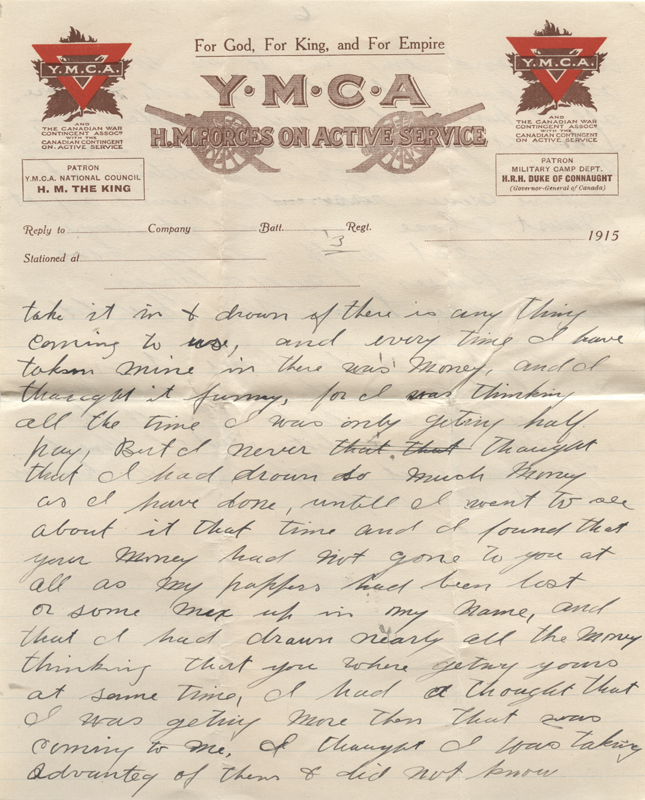 For God, For King, and For Empire
Y.M.C.A.
Y·M·C·A
Y.M.C.A.
AND
THE CANADIAN WAR
CONTINGENT ASSOCN
WITH THE
CANADIAN CONTINGENT
ON ACTIVE SERVICE
H.M. FORCES ON ACTIVE SERVICE
AND
THE CANADIAN WAR
CONTINGENT ASSOCN
WITH THE
CANADIAN CONTINGENT
ON ACTIVE SERVICE
PATRON
Y.M.C.A. NATIONAL COUNCIL
H. M. THE KING
PATRON
MILITARY CAMP DEPT.
H.R.H. DUKE OF CONNAUGHT
(Governor-General of Canada)
Reply to Company Batt. Regt.
3
1915
Stationed at
take it in & drown if there is any thing
coming to us, and every time I have
taken mine in there was Money, and I
thaught it funny, for I was thinking
all the time I was only geting half
pay, But I never that that thought
that I had drown so much Money
as I have done, untill I went to see
about it that time and I found that
your Money had not gone to you at
all as my pappers had been lost
or some mex up in my name, and
that I had drawn nearly all the Money
thinking that you where geting yours
at same time, I had a thought that
I was geting More then that was
coming to me. I thaught I was taking
advanteg of them & did not know